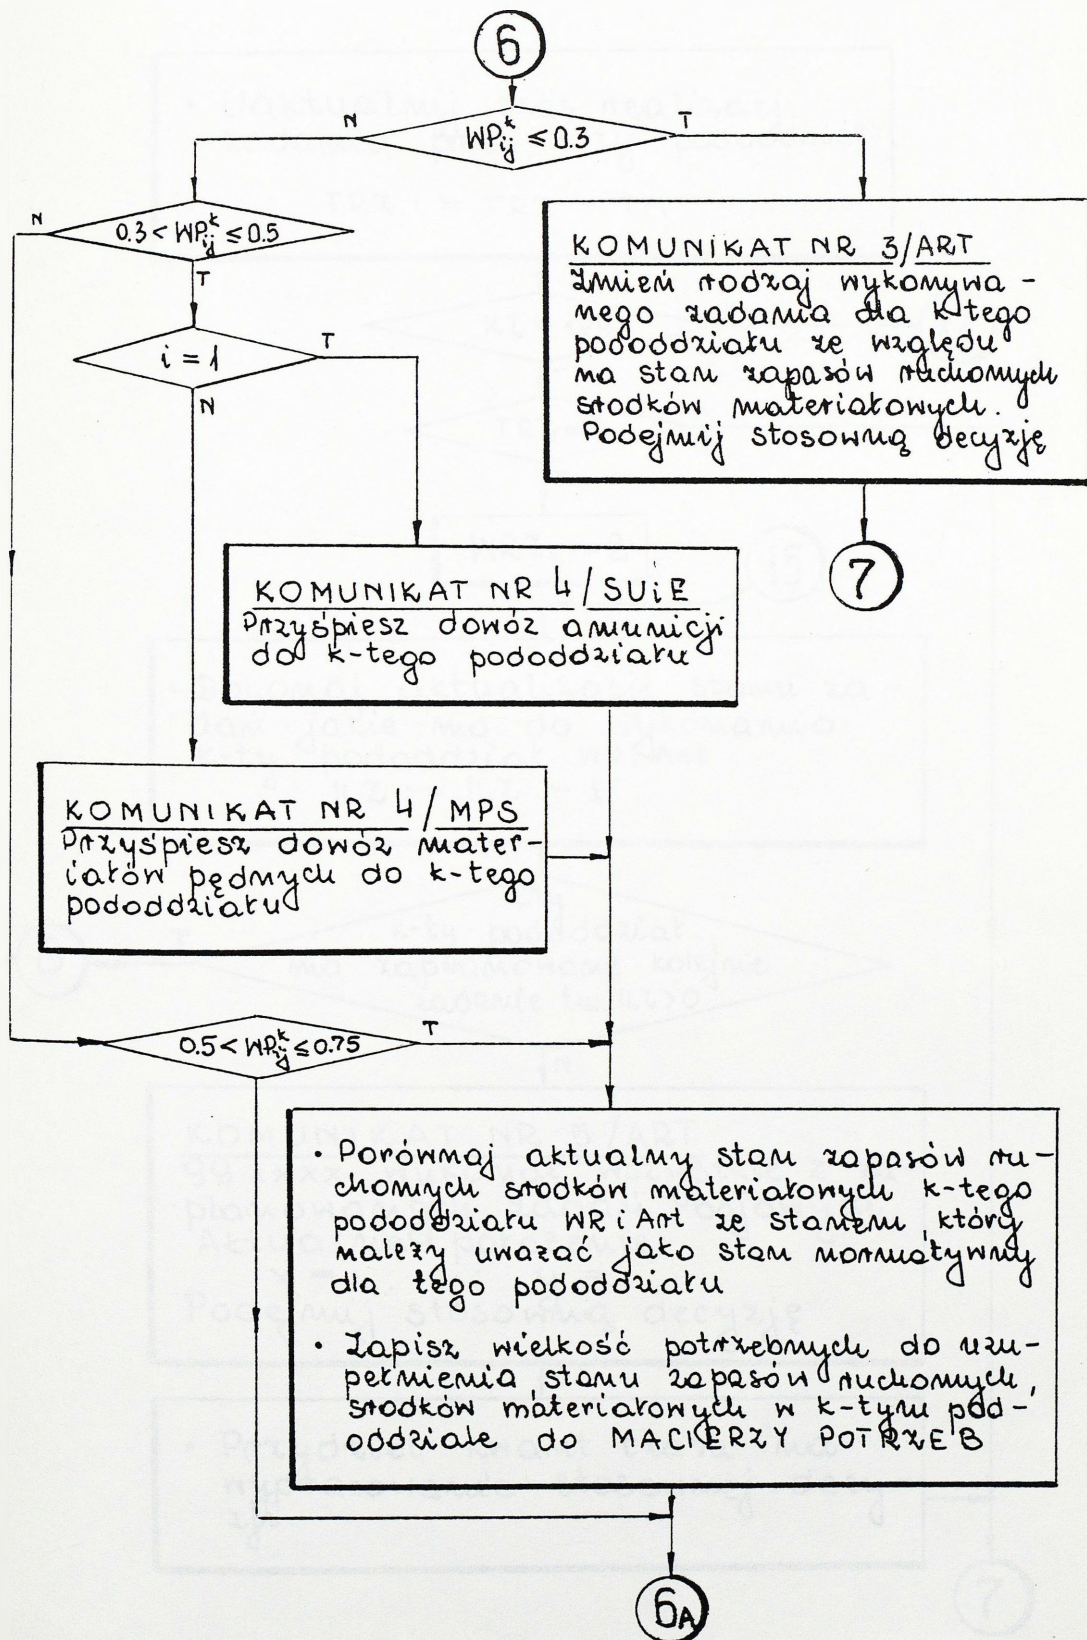 6
N
WP_ij^k ≤ 0.3
T
N
0.3 < WP_ij^k ≤ 0.5
T
i = 1
T
N
KOMUNIKAT NR 3/ART
Zmień rodzaj wykonywa-
nego zadania dla k-tego
pododdziału ze względu
na stan zapasów ruchomych
środków materiałowych.
Podejmij stosowną decyzję
7
KOMUNIKAT NR 4/SUiE
Przyśpiesz dowóz amunicji
do k-tego pododdziału
KOMUNIKAT NR 4/MPS
Przyśpiesz dowóz mater-
iałów pędnych do k-tego
pododdziału
0.5 < WP_ij^k ≤ 0.75
T
• Porównaj aktualny stan zapasów ru-
chomych środków materiałowych k-tego
pododdziału WRiArt ze stanem, który
należy uważać jako stan normatywny
dla tego pododdziału
• Zapisz wielkość potrzebnych do uzu-
pełnienia stanu zapasów ruchomych
środków materiałowych w k-tym pod-
oddziale do MACIERZY POTRZEB
6A